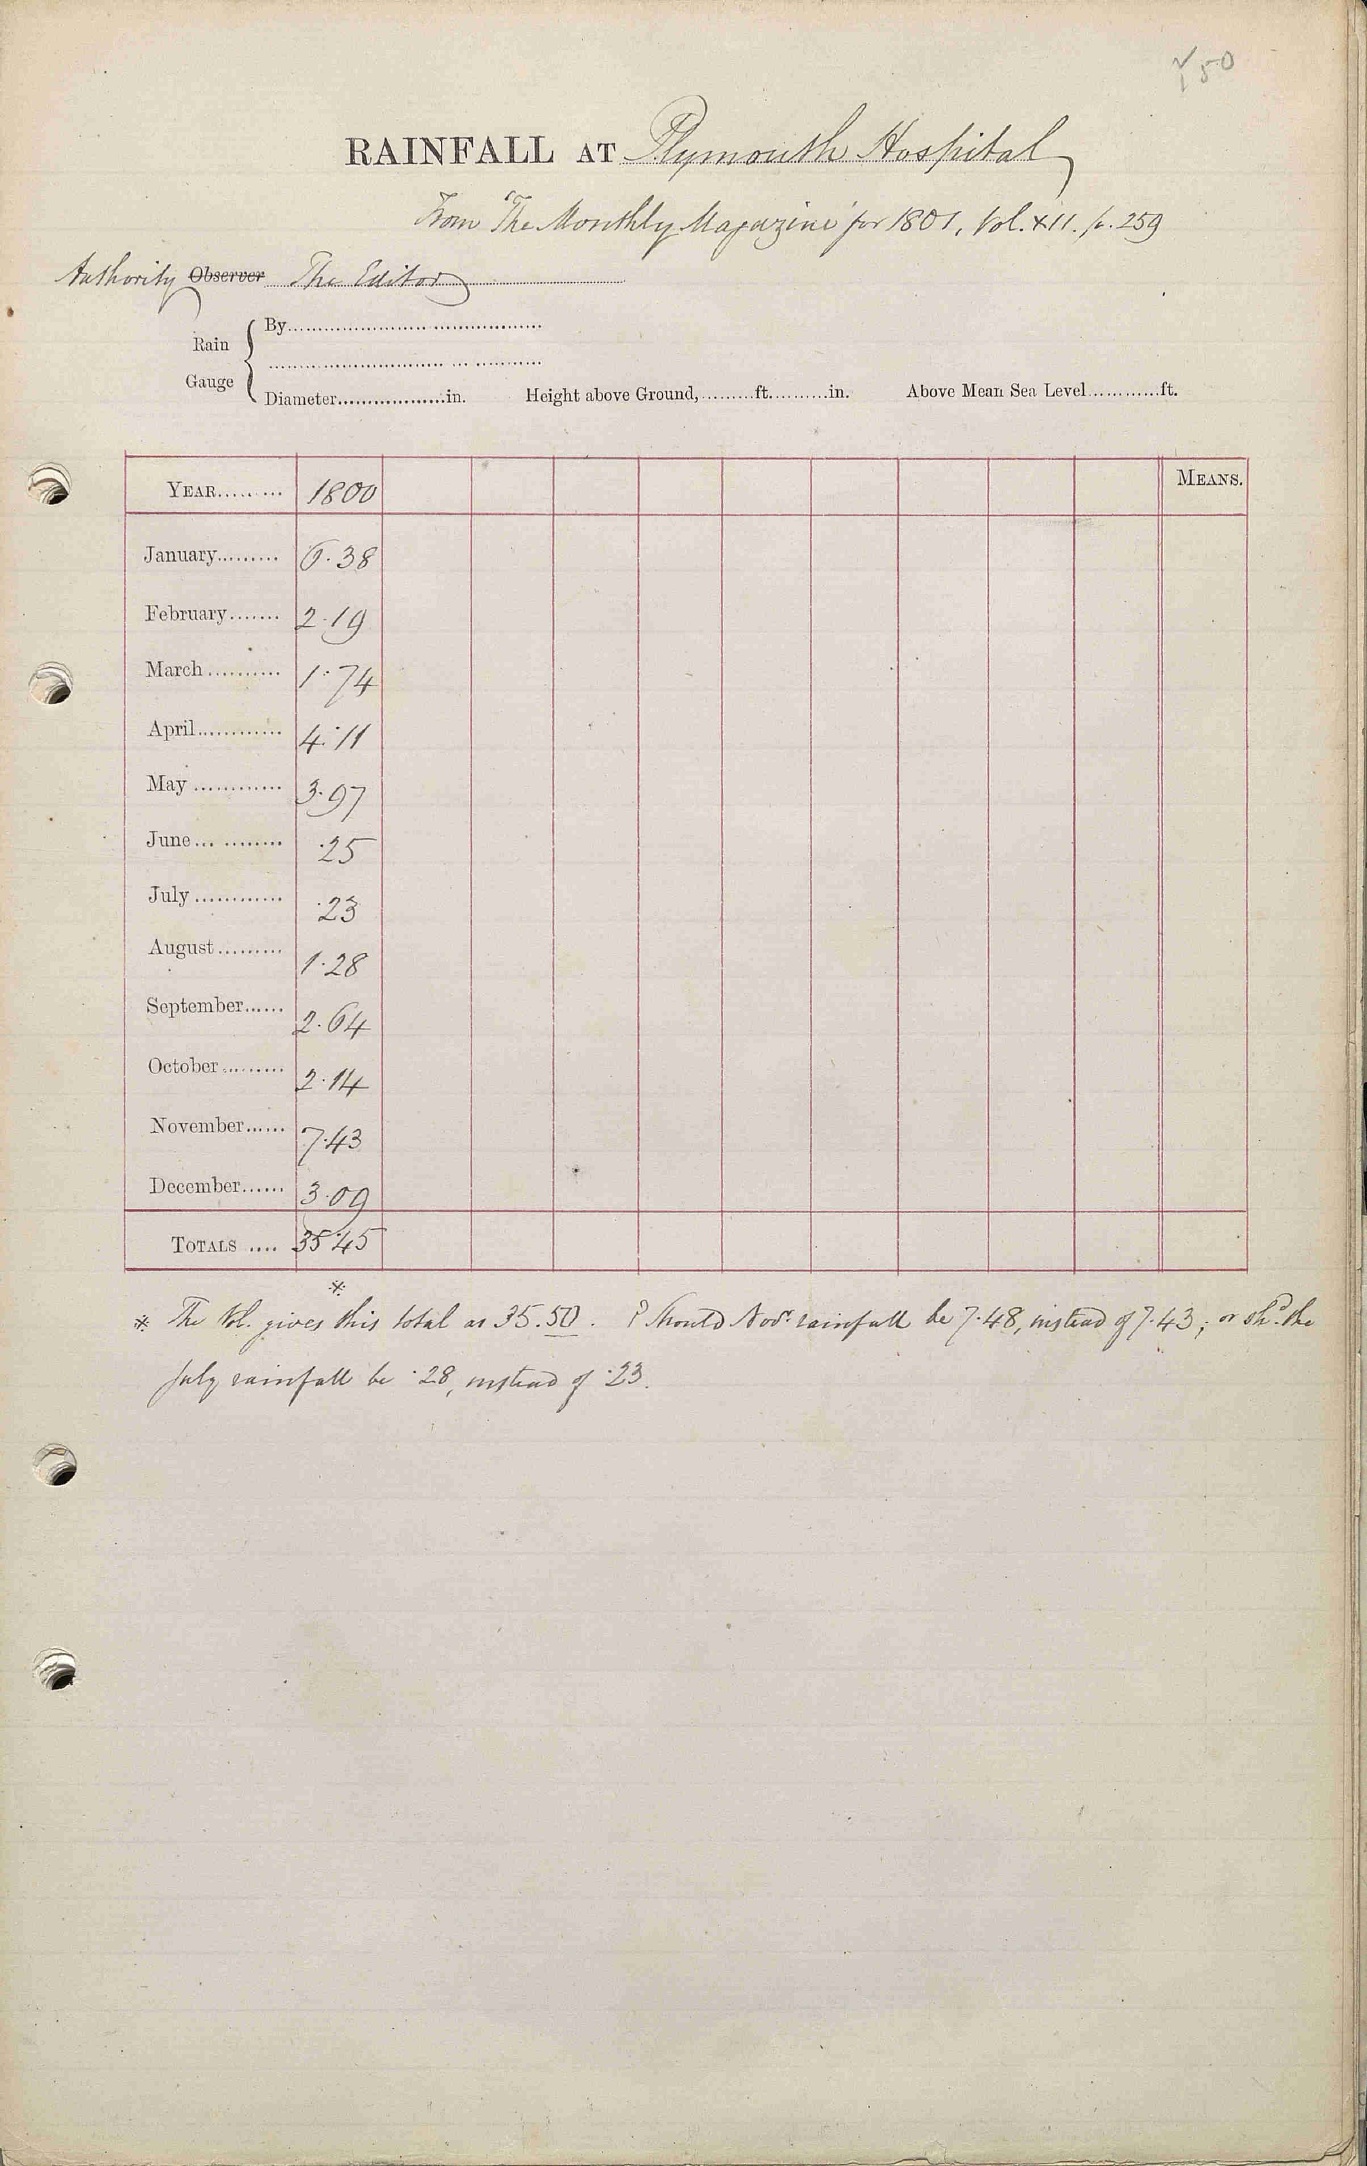 50
RAINFALL AT Plymouth Hospital
From 'The Monthly Magazine' for 1801, Vol. XII. p. 259
Authority Observer The Editor
Rain Gauge
By
Diameter in. Height above Ground, ft. in. Above Mean Sea Level ft.
YEAR 1800 MEANS.
January 6.38
February 2.19
March 1.74
April 4.11
May 3.97
June .25
July .23
August 1.28
September 2.64
October 2.14
November 7.43
December 3.09
TOTALS 35.45
*
* The Vol. gives this total as 35.50. ? Should Novr. rainfall be 7.48, instead of 7.43; or shd. the
July rainfall be .28, instead of .23.